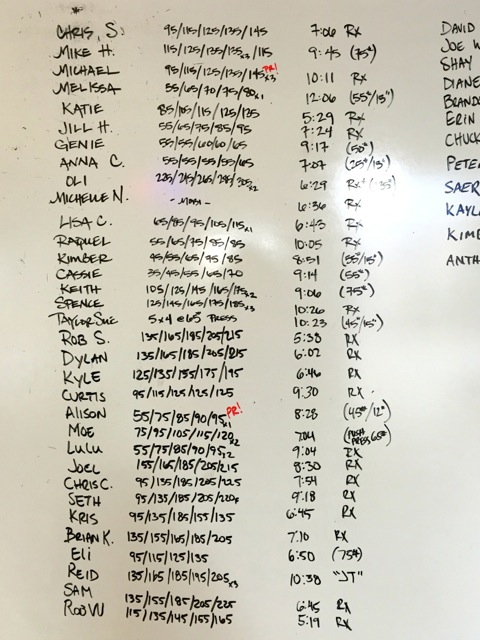 CHRIS, S. 95/115/125/135/145 7:06 Rx
MIKE H. 115/125/135/135x3/115 9:45 (75#)
MICHAEL 95/115/125/135/145x3 PR! 10:11 Rx
MELISSA 55/65/70/75/80x1 12:06 (55#/15")
KATIE 85/105/115/125/125 5:29 Rx
JILL H. 55/65/75/85/95 7:24 Rx
GENIE 55/55/60/60/65 9:17 (50#)
ANNA C. 55/55/55/55/65 7:07 (25#/15")
OLI 225/245/265/285/305x2 6:29
MICHELLE N. 6:36 Rx
LISA C. 65/85/95/105/115x1 6:43 Rx
RAQUEL 55/65/75/85/85 10:05 Rx
KIMBER 45/55/65/95/85 8:51 (55#/15")
CASSIE 35/45/55/65/70 9:14 (55#)
KEITH 105/125/145/165/175x2 9:06 (75#)
SPENCE 125/145/165/175/185x3 10:26 Rx
TAYLOR SUE 5x4@65 PRESS 10:23 (45#/15")
ROB S. 135/165/185/205/215 5:38 Rx
DYLAN 135/165/185/205/215 6:02 Rx
KYLE 125/135/155/175/195 6:46 Rx
CURTIS 95/115/125/125/125 9:30 Rx
ALISON 55/75/85/90/95x1 PR! 8:28 (45#/12"
MOE 75/95/105/115/120x2 7:04 (PUSH PRESS 65#)
LULU 55/75/85/90/95x2 9:04 Rx
JOEL 155/165/185/205/215 8:30 Rx
CHRIS C. 95/135/185/205/225 7:54 Rx
SETH 95/135/185/205/220F 9:18 Rx
KRIS 95/135/185/155/135 6:45 Rx
BRIAN K. 135/155/165/185/205 7:10 Rx
ELI 95/115/125/135 6:50 (75#)
REID 135/165/185/195/205x3 10:38 "JT"
SAM 135/155/185/205/225 6:45 Rx
ROB W 115/135/145/155/165 5:19 Rx
DAVID
JOE W
SHAY
DIANE
ERIN
CHUCK
PETE
SAER
KAYL
KIM
ANTH